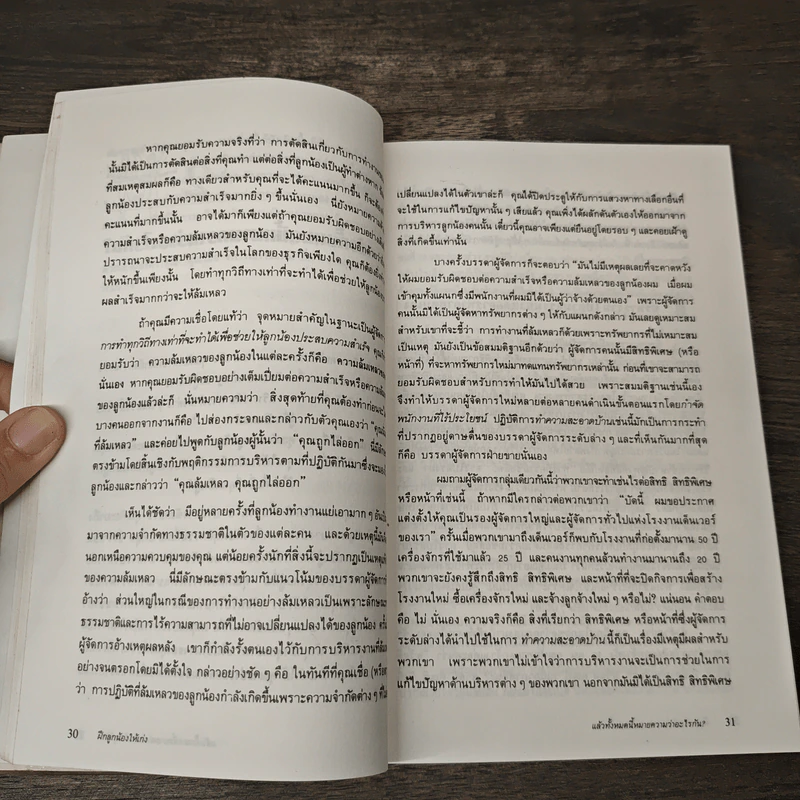 หากคุณยอมรับความจริงที่ว่า การตัดสินเกี่ยวกับการทำงาน
นั้นมิได้เป็นการตัดสินต่อสิ่งที่คุณทำ แต่ต่อสิ่งที่ลูกน้องเป็นผู้ทำต่างหาก
ที่สมเหตุสมผลก็คือ ทางเดียวสำหรับคุณที่จะได้คะแนนมากขึ้น ก็จะต้อง
ลูกน้องประสบกับความสำเร็จมากยิ่ง ๆ ขึ้นนั่นเอง นี่ยังหมายความ
คะแนนที่มากขึ้นนั้น อาจได้มาก็เพียงแต่ถ้าคุณยอมรับผิดชอบอย่างเต็ม
ความสำเร็จหรือความล้มเหลวของลูกน้อง มันยังหมายความอีกด้วยว่า
ปรารถนาจะประสบความสำเร็จในโลกของธุรกิจเพียงใด คุณก็ต้อง
ให้หนักขึ้นเพียงนั้น โดยทำทุกวิถีทางเท่าที่จะทำได้เพื่อช่วยให้ลูกน้อง
ผลสำเร็จมากกว่าจะให้ล้มเหลว
ถ้าคุณมีความเชื่อโดยแท้ว่า จุดหมายสำคัญในฐานะเป็นผู้จัดการ
การทำทุกวิถีทางเท่าที่จะทำได้เพื่อช่วยให้ลูกน้องประสบความสำเร็จ คุณ
ยอมรับว่า ความล้มเหลวของลูกน้องในแต่ละครั้งก็คือ ความล้มเหลว
นั่นเอง หากคุณยอมรับผิดชอบอย่างเต็มเปี่ยมต่อความสำเร็จหรือความ
ของลูกน้องแล้วล่ะก็ นั่นหมายความว่า สิ่งสุดท้ายที่คุณต้องทำก่อน
บางคนออกจากงานก็คือ ไปส่องกระจกและกล่าวกับตัวคุณเองว่า "คุณ
ที่ล้มเหลว" และค่อยไปพูดกับลูกน้องผู้นั้นว่า "คุณถูกไล่ออก" นี่มี
ตรงข้ามโดยสิ้นเชิงกับพฤติกรรมการบริหารตามที่ปฏิบัติกันมาซึ่งจะ
ลูกน้องและกล่าวว่า "คุณล้มเหลว คุณถูกไล่ออก"
เห็นได้ชัดว่า มีอยู่หลายครั้งที่ลูกน้องทำงานแย่เอามาก ๆ อัน
มาจากความจำกัดทางธรรมชาติในตัวของแต่ละคน และด้วยเหตุนี้
นอกเหนือความควบคุมของคุณ แต่น้อยครั้งนักที่สิ่งนี้จะปรากฏเป็นเหตุ
ของความล้มเหลว นี่มีลักษณะตรงข้ามกับแนวโน้มของบรรดาผู้จัดการ
อ้างว่า ส่วนใหญ่ในกรณีของการทำงานอย่างล้มเหลวเป็นเพราะลักษณะ
ธรรมชาติและการไร้ความสามารถที่ไม่อาจเปลี่ยนแปลงได้ของลูกน้อง ครั้ง
ผู้จัดการอ้างเหตุผลหลัง เขาก็กำลังรั้งตนเองไว้กับการบริหารงานที่
อย่างจนตรอกโดยมิได้ตั้งใจ กล่าวอย่างชัด ๆ คือ ในทันทีที่คุณเชื่อ (หรือ
ว่า การปฏิบัติที่ล้มเหลวของลูกน้องกำลังเกิดขึ้นเพราะความจำกัดต่าง ๆ ที่
30 ฝึกลูกน้องให้เก่ง
เปลี่ยนแปลงได้ในตัวเขาล่ะก็ คุณได้ปิดประตูให้กับการแสวงหาทางเลือกอื่นที่
จะใช้ในการแก้ไขปัญหานั้น ๆ เสียแล้ว คุณเพิ่งได้ผลักดันตัวเองให้ออกมาจาก
การบริหารลูกน้องคนนั้น เดี๋ยวนี้คุณอาจเพียงแต่ยืนอยู่โดยรอบ ๆ และคอยเฝ้าดู
สิ่งที่เกิดขึ้นเท่านั้น
บางครั้งบรรดาผู้จัดการก็จะตอบว่า "มันไม่มีเหตุผลเลยที่จะคาดหวัง
ให้ผมยอมรับผิดชอบต่อความสำเร็จหรือความล้มเหลวของลูกน้องผม เมื่อผม
เข้าคุมทั้งแผนกซึ่งมีพนักงานที่ผมมิได้เป็นผู้ว่าจ้างด้วยตนเอง" เพราะผู้จัดการ
คนนั้นมิได้เป็นผู้จัดหาทรัพยากรต่าง ๆ ให้กับแผนกดังกล่าว มันเลยดูเหมาะสม
สำหรับเขาที่จะชี้ว่า การทำงานที่ล้มเหลวก็ด้วยเพราะทรัพยากรที่ไม่เหมาะสม
เป็นเหตุ มันยังเป็นข้อสมมติฐานอีกด้วยว่า ผู้จัดการคนนั้นมีสิทธิพิเศษ (หรือ
หน้าที่) ที่จะหาทรัพยากรใหม่มาทดแทนทรัพยากรเหล่านั้น ก่อนที่เขาจะสามารถ
ยอมรับผิดชอบสำหรับการทำให้มันไปได้สวย เพราะสมมติฐานเช่นนี้เอง
จึงทำให้บรรดาผู้จัดการใหม่หลายต่อหลายคนดำเนินขั้นตอนแรกโดยกำจัด
พนักงานที่ไร้ประโยชน์ ปฏิบัติการทำความสะอาดบ้านเช่นนี้มักเป็นการกระทำ
ที่ปรากฏอยู่ดาษดื่นของบรรดาผู้จัดการระดับล่าง ๆ และที่เห็นกันมากที่สุด
ก็คือ บรรดาผู้จัดการฝ่ายขายนั่นเอง
ผมถามผู้จัดการกลุ่มเดียวกันนี้ว่าพวกเขาจะทำเช่นไรต่อสิทธิ สิทธิพิเศษ
หรือหน้าที่เช่นนี้ ถ้าหากมีใครกล่าวต่อพวกเขาว่า "บัดนี้ ผมขอประกาศ
แต่งตั้งให้คุณเป็นรองผู้จัดการใหญ่และผู้จัดการทั่วไปแห่งโรงงานเด็นเวอร์
ของเรา" ครั้นเมื่อพวกเขามาถึงเด็นเวอร์ก็พบกับโรงงานที่ก่อตั้งมานาน 50 ปี
เครื่องจักรที่ใช้มาแล้ว 25 ปี และคนงานทุกคนล้วนทำงานมานานถึง 20 ปี
พวกเขาจะยังคงรู้สึกถึงสิทธิ สิทธิพิเศษ และหน้าที่ที่จะปิดกิจการเพื่อสร้าง
โรงงานใหม่ ซื้อเครื่องจักรใหม่ และจ้างลูกจ้างใหม่ ๆ หรือไม่? แน่นอน คำตอบ
คือ ไม่ นั่นเอง ความจริงก็คือ สิ่งที่เรียกว่า สิทธิพิเศษ หรือหน้าที่ซึ่งผู้จัดการ
ระดับล่างได้นำไปใช้ในการ ทำความสะอาดบ้าน นี้ก็เป็นเรื่องมีเหตุมีผลสำหรับ
พวกเขา เพราะพวกเขาไม่เข้าใจว่าการบริหารงานจะเป็นการช่วยในการ
แก้ไขปัญหาด้านบริหารต่าง ๆ ของพวกเขา นอกจากมันมิได้เป็นสิทธิ สิทธิพิเศษ
แล้วทั้งหมดนี้หมายความว่าอะไรกัน? 31